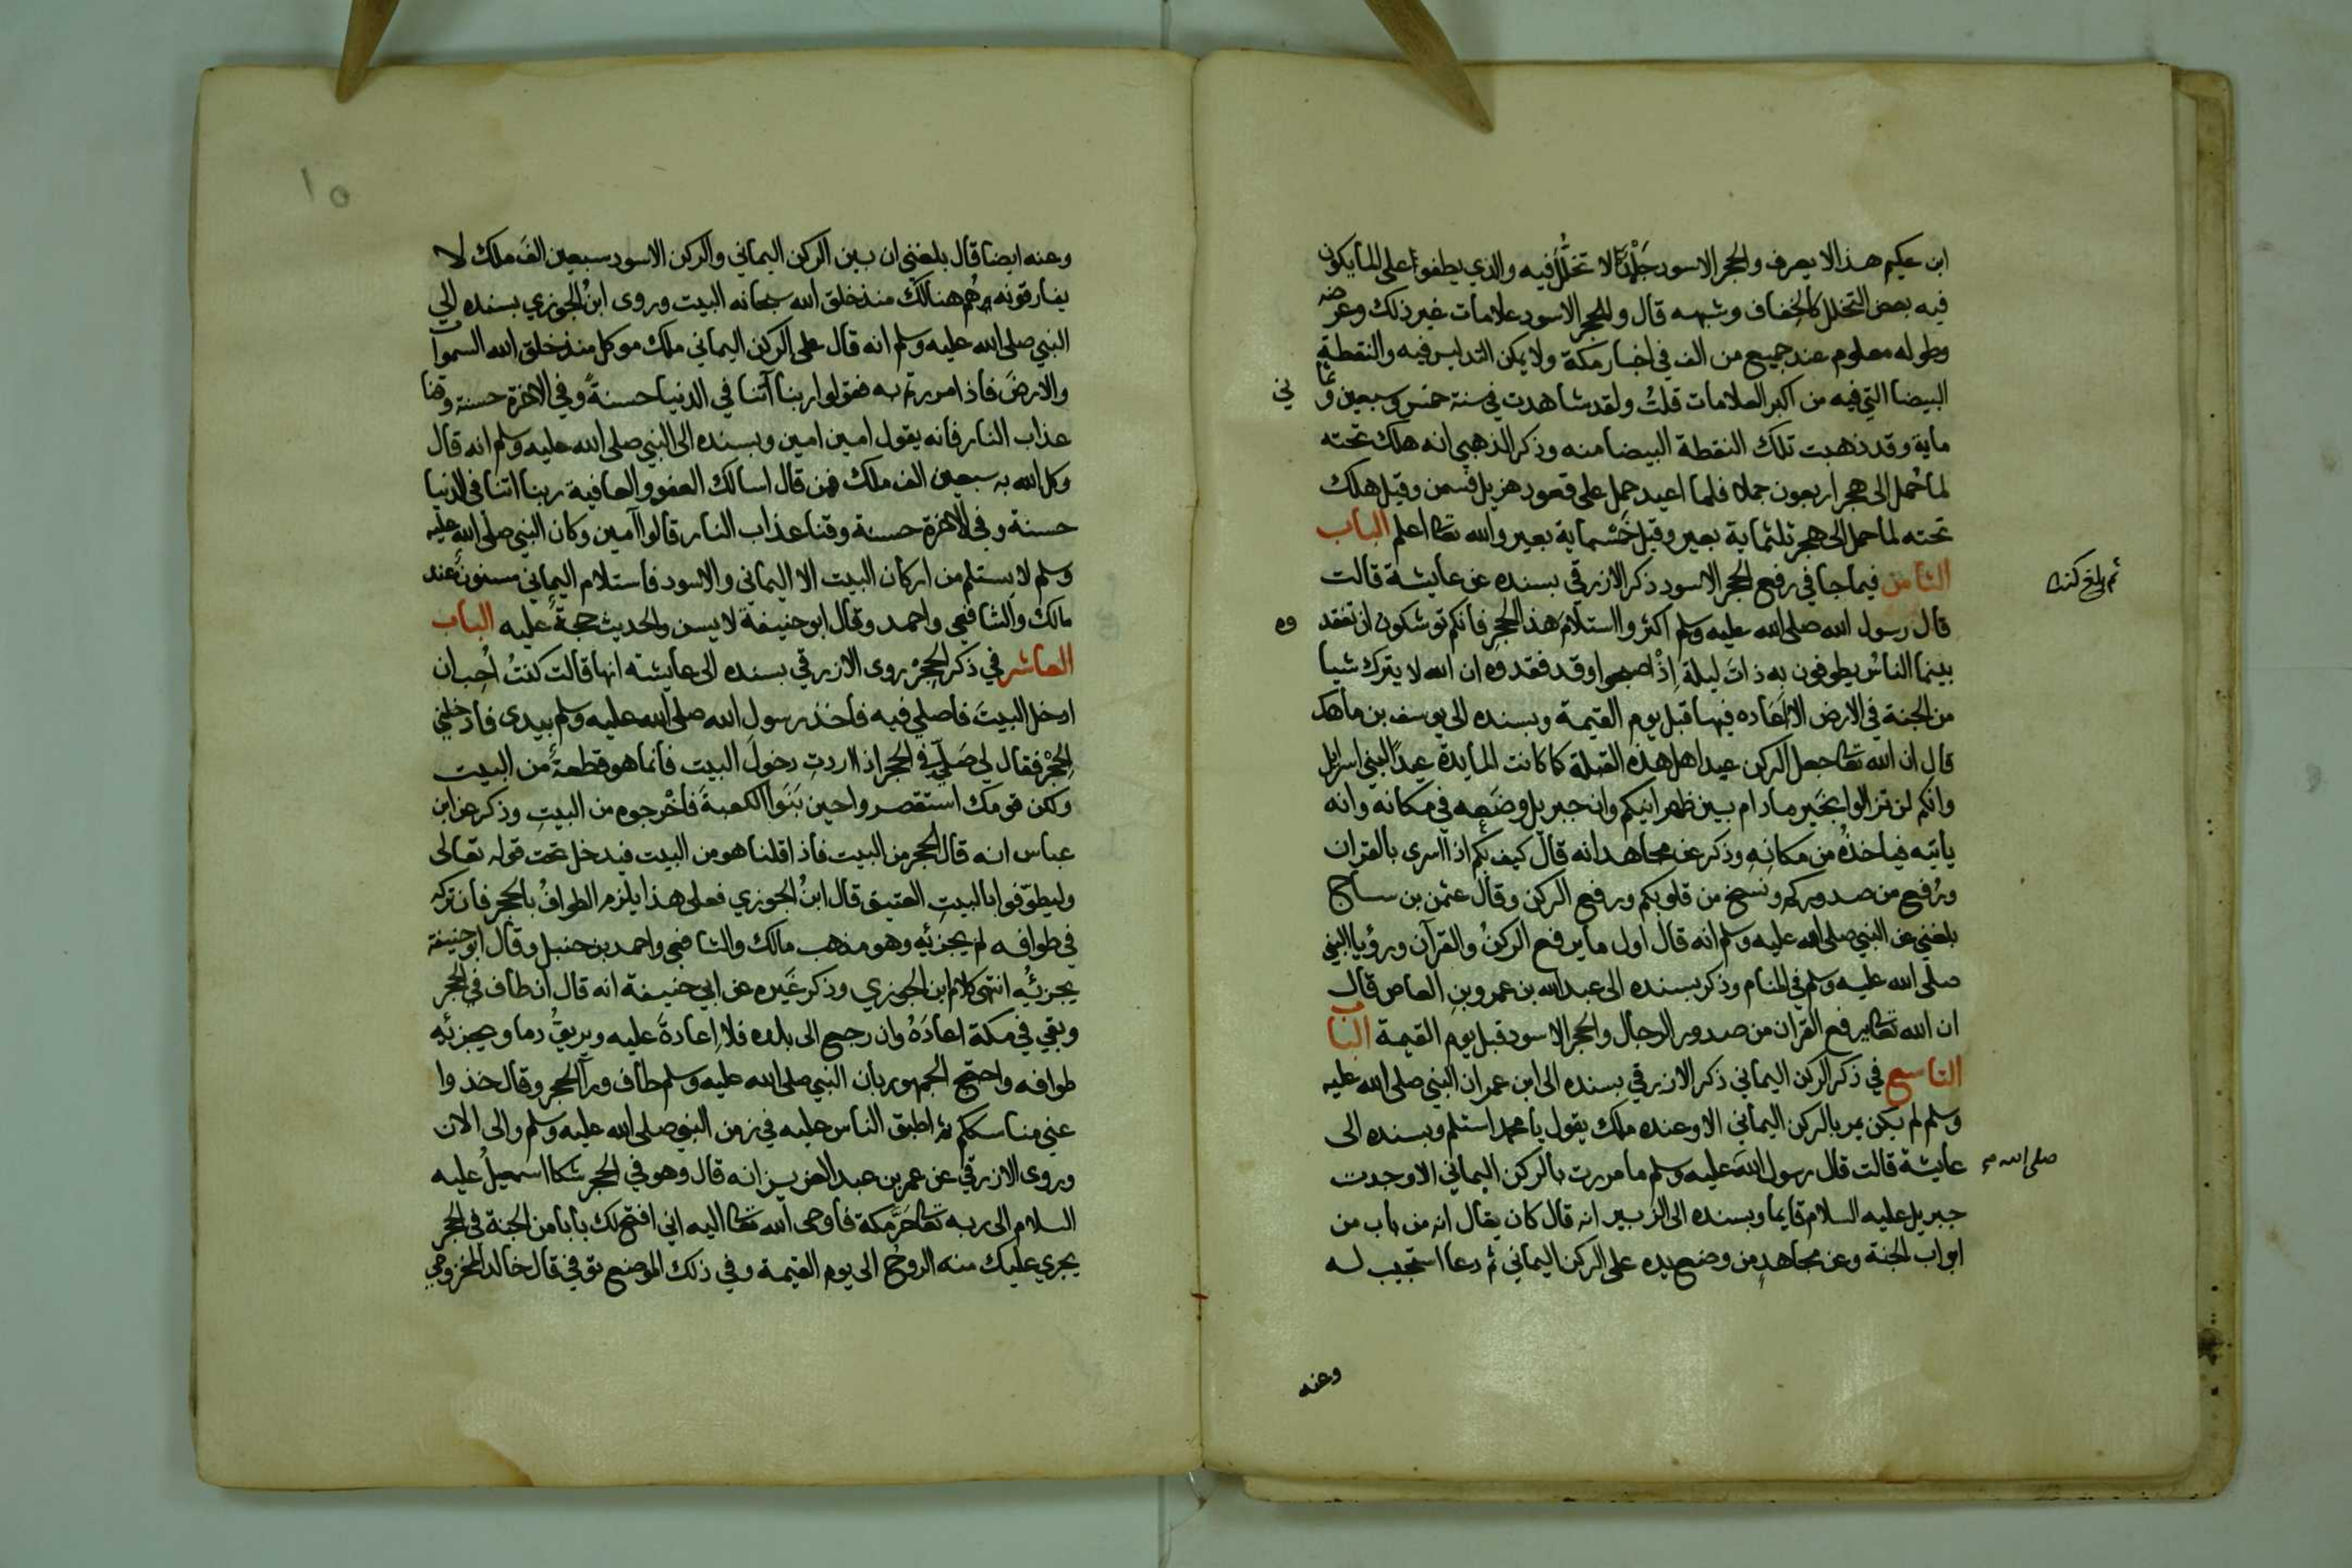 ابن عكيم هذا لا يعرف والحجر الاسود جَلْمَدٌ لا تخلُّلَ فيه والذي يطفوا على الما يكون
فيه بعض التخلل كالخفاف وشبهه قال وللحجر الاسود علامات غير ذلك وعرضه
وطوله معلوم عند جميع من الف في اخبار مكة ولا يمكن التدليس فيه والنقطة
البيضا التي فيه من اكبر العلامات قلتُ ولقد شاهدت في سنة خمس وسبعين وثما ني
ماية وقد ذهبت تلك النقطة البيضا منه وذكر الذهبي انه هلك تحته
لما حُمل الى هجر اربعون جملا فلما اعيد حمل على قعود هزيل فسمن وقيل هلك
تحته لما حمل الى هجر ثلثماية بعير وقيل خمسماية بعير والله تعا اعلم الباب
الثامن فيما جا في رفع الحجر الاسود ذكر الازرقي بسنده عن عايشة قالت
ثم بلغ
قال رسول الله صلى الله عليه وسلم اكثروا استلامَ هذا الحجرِ فانكم توشكون ان تفقد وه
بينما الناسُ يطوفون به ذاتَ ليلة إذْ اصبحوا وقد فقدوه ان الله لا يترك شيا
من الجنة في الارض الا اعاده فيها قبل يوم القيمة وبسنده الى يوسف بن ماهك
قال ان الله تعا جعل الركن عيد اهل هذه القبلة كما كانت المايدة عيدًا لبني اسرائل
وانكم لن تزالوا بخير ما دام بين ظهرانيكم وان جبريل وضعه في مكانه وانه
ياتيه فياخذُه من مكانِهِ وذكر عن مجاهد انه قال كيف بكم اذا اسرى بالقران
ورُفع من صدوركم ونُسخ من قلوبكم ورفع الركن وقال عثمن بن ساج
بلغني عن النبي صلى الله عليه وسلم انه قال اول ما يرفع الركنُ والقرآن ورؤيا النبي
صلى الله عليه وسلم في المنام وذكر بسنده الى عبد الله بن عمرو بن العاص قال
ان الله تعا يرفع القران من صدور الرجال والحجر الاسود قبل يوم القيمة الباب
التاسع في ذكر الركن اليماني ذكر الازرقي بسنده الى ابن عمر ان النبي صلى الله عليه
وسلم لم يكن يمر بالركن اليماني الا وعنده ملك يقول يا محمد استلم وبسنده الى
عايشة قالت قال رسول الله عليه وسلم ما مررت بالركن اليماني الا وجدت
صلى الله صح
جبريل عليه السلام قايما وبسنده الى الزبير انه قال كان يقال انه من باب من
ابواب الجنة وعن مجاهدٍ من وضع يده على الركن اليماني ثم دعا استجيب له
وعنه
١٥
وعنه ايضا قال بلغني ان بين الركن اليماني والركن الاسود سبعين الفَ ملك لا
يفارقونه هُم هنالك منذ خلق الله سبحانه البيت وروى ابنُ الجوزي بسنده الى
النبي صلى الله عليه وسلم انه قال على الركن اليماني ملك موكل منذ خلق الله السموات
والارضَ فاذا مررتم به فقولوا ربنا آتنا في الدنيا حسنةً وفي الاخرة حسنة وقنا
عذاب النار فانه يقول امين امين وبسنده الى النبي صلى الله عليه وسلم انه قال
وكل الله به سبعين الف ملك فمن قال اسالك العفو والعافية ربنا اتنا في الدنيا
حسنة وفي الاخرة حسنة وقنا عذاب النار قالوا آمين وكان النبي صلى الله عليه
وسلم لا يستلم من اركان البيت الا اليماني والاسود فاستلام اليماني مسنونٌ عند
مالك والشافعي واحمد وقال ابو حنيفة لا يسن والحديث حجةٌ عليه الباب
العاشر في ذكر الحِجْر روى الازرقي بسنده الى عايشة انها قالت كنتُ أُحِب ان
ادخل البيتَ فاصلي فيه فاخذ رسول الله صلى الله عليه وسلم بيدى فادخلني
الحِجْر فقال لي صَلّي في الحجر اذا اردتِ دخولَ البيت فانما هو قطعةٌ من البيت
ولكن قومَك استقصروا حين بَنَوا الكعبةَ فاخْرجوه من البيتِ وذكر عن ابن
عباس انه قال الحجر من البيت فاذا قلنا هو من البيت فيدخل تحت قوله تعالى
وليطوّفوا بالبيتِ العتيق قال ابنُ الجوزي فعلى هذا يلزم الطوافُ بالحجر فان تركه
في طوافه لم يجزئه وهو مذهب مالك والشافعي واحمد بن حنبل وقال ابو حنيفة
يجزئه انتهى كلام ابن الجوزي وذكر غَيره عن ابي حنيفة انه قال ان طاف في الحجر
وبقي في مكة اعادَهُ وان رجع الى بلده فلا إعادةَ عليه ويريقُ دما ويجزئه
طوافه واحتج الجمهور بان النبي صلى الله عليه وسلم طاف ورآ الحجر وقال خذوا
عني مناسككم ثم اطبق الناس عليه في زمن النبي صلى الله عليه وسلم والى الان
وروى الازرقي عن عمر بن عبد العزيز انه قال وهو في الحجر شكا اسمعيلُ عليه
السلام الى ربه تعا حَرَّ مكة فاوحى الله تعا اليه اني افتح لك بابا من الجنة في الحجر
يجري عليك منه الروحُ الى يوم القيمة وفي ذلك الموضع توفي قال خالد المخزومي